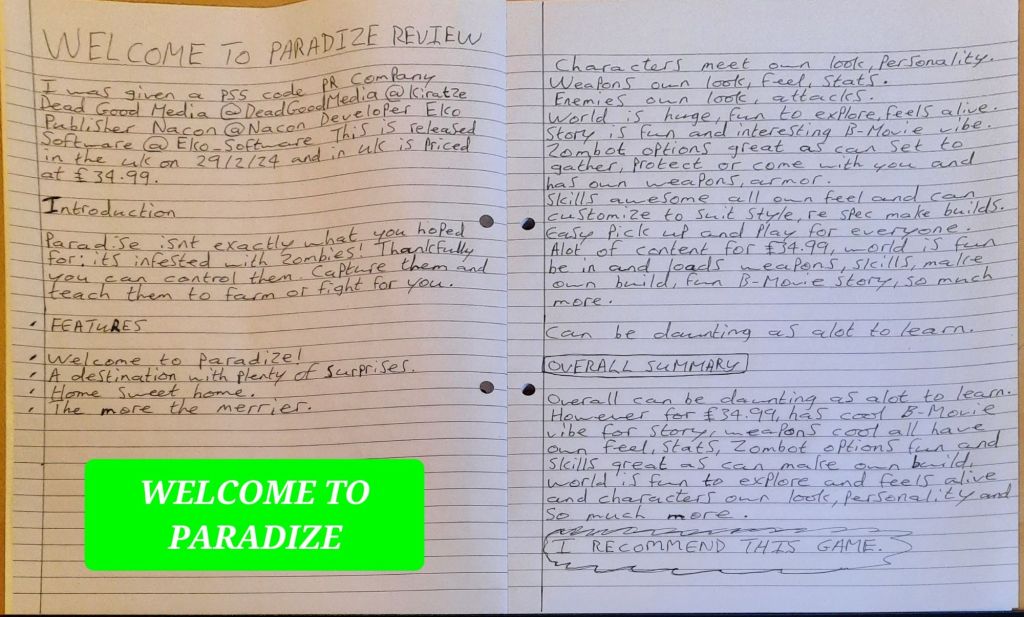 WELCOME TO PARADIZE REVIEW
I was given a PS5 code PR Company
Dead Good Media @DeadGoodMedia @Kiratze
Publisher Nacon @Nacon Developer Eko
Software @ Eko_Software This is released
in the uk on 29/2/24 and in uk is Priced
at £34.99.
Introduction
Paradise isnt exactly what you hoped
for: its infested with Zombies! Thankfully
you can control them. Capture them and
teach them to farm or fight for you.
• FEATURES
• Welcome to Paradize!
• A destination with plenty of Surprises.
• Home Sweet home.
• The more the merrier.
WELCOME TO
PARADIZE
Characters meet own look, Personality.
Weapons own look, feel, Stats.
Enemies own look, attacks.
World is huge, fun to explore, feels alive.
Story is fun and interesting B-Movie vibe.
Zombot options great as can Set to
gather, Protect or come with you and
has own weapons, armor.
Skills awesome all own feel and can
customize to suit Style, re spec make builds.
Easy Pick up and Play for everyone.
Alot of content for £34.99, world is fun
be in and loads weapons, skills, make
own build, fun B-Movie Story, So much
more.
Can be daunting as alot to learn.
OVERALL SUMMARY
Overall can be daunting as alot to learn.
However for £34.99, has cool B-Movie
vibe for Story, weapons cool all have
own feel, Stats, Zombot options fun and
Skills great as can make own build,
world is fun to explore and feels alive
and characters own look, Personality and
So much more.
I RECOMMEND THIS GAME.